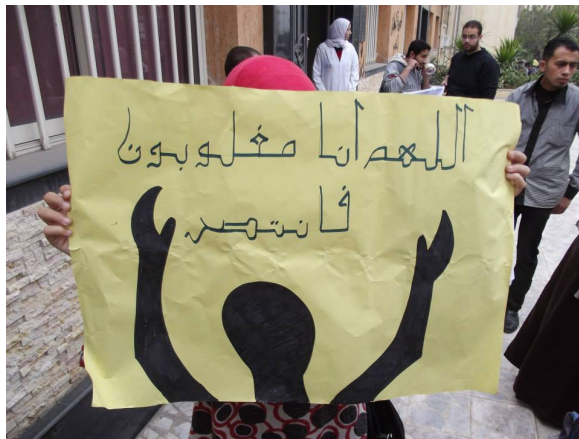 اللهم انا مغلوبون
فانتصر